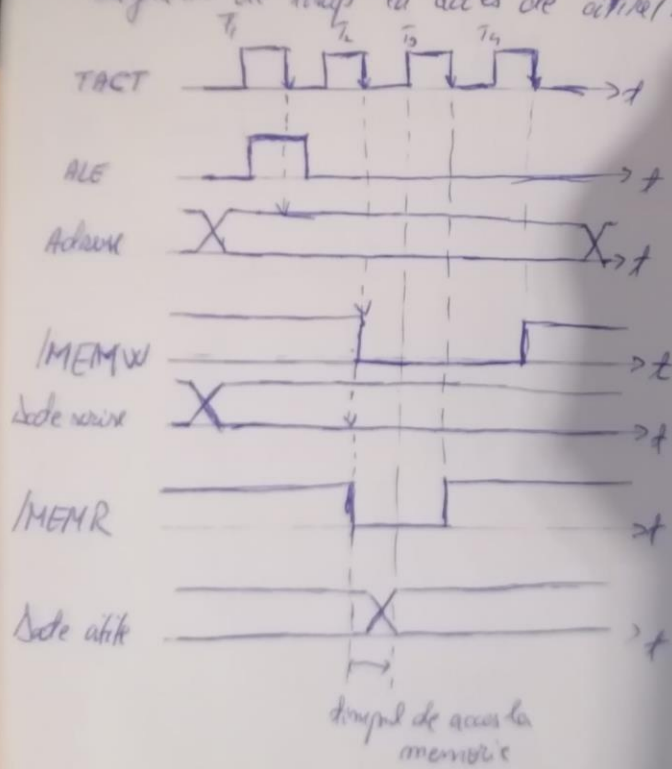 de timp la acces de citire/
T1 T2 T3 T4
TACT t
ALE t
Adrese t
/MEMW t
Date scrise t
/MEMR t
Date citite t
timpul de acces la
memorie